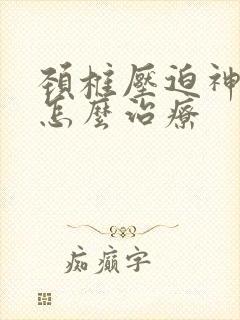 頚椎壓迫神
怎麼治療
痴癲字